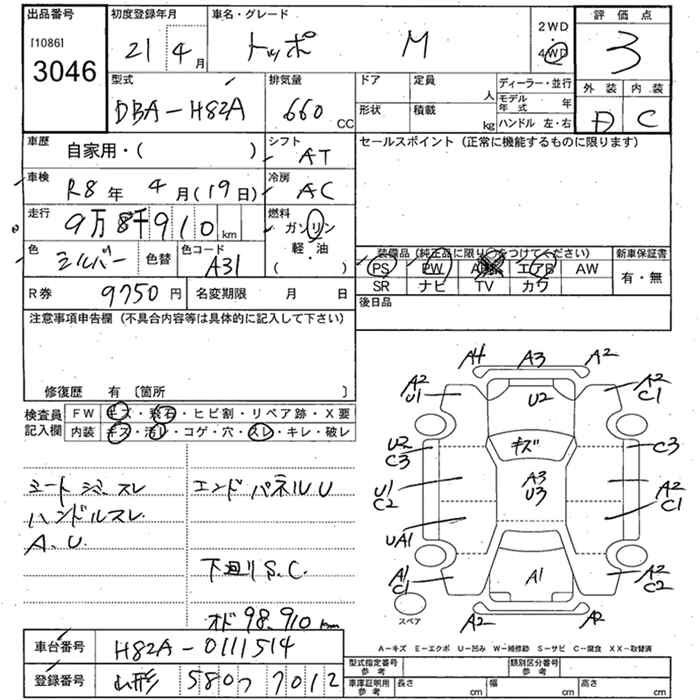 出品番号
[1086]
3046
初度登録年月
21 4月
車名・グレード
トッポ M
2WD
4WD
評価点
3
外装 内装
D C
型式
DBA-H82A
排気量
660 CC
ドア 定員 人
形状 積載 kg
ディーラー・並行
モデル年式 年
ハンドル 左・右
車歴
自家用・( )
シフト
AT
セールスポイント(正常に機能するものに限ります)
車検
R8年 4月(19日)
冷房
AC
走行
9万8千910km
燃料
ガソリン
軽・油
( )
色
シルバー
色替
色コード
A31
装備品(純正品に限り○をつけてください)
PS PW エアB AW
SR ナビ TV カワ
新車保証書
有・無
R券
9750円
名変期限 月 日
後日品
注意事項申告欄(不具合内容等は具体的に記入して下さい)
修復歴 有〔箇所 〕
検査員
記入欄
FW キズ・飛石・ヒビ割・リペア跡・X要
内装 キズ・汚レ・コゲ・穴・スレ・キレ・破レ
シートシミスレ
ハンドルスレ
A.U.
エンドパネルU
下廻りS.C.
オド98,910km
A4 A3 A2
A2
U1
U2
A2
C1
U2
C3
キズ
C3
U1
C2
A3
U3
A2
C1
UA1
A1
C1
A1
A2
C2
スペア
A2 A2
A-キズ E-エクボ U-凹み W-補修跡 S-サビ C-腐食 XX-取替済
車台番号
H82A-0111514
登録番号
山形 580つ7012
型式指定番号
参考
類別区分番号
参考
車庫証明用
参考
長さ cm
幅 cm
高さ cm